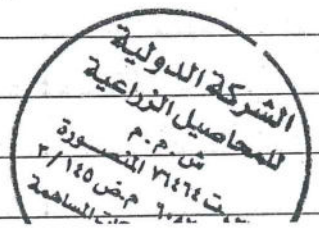 الشركة الدولية
للمحاصيل الزراعية
ش. م. م
ت ٧٦٤٦٤ المنصورة
م.ض ٢/١٤٥
المساهمة